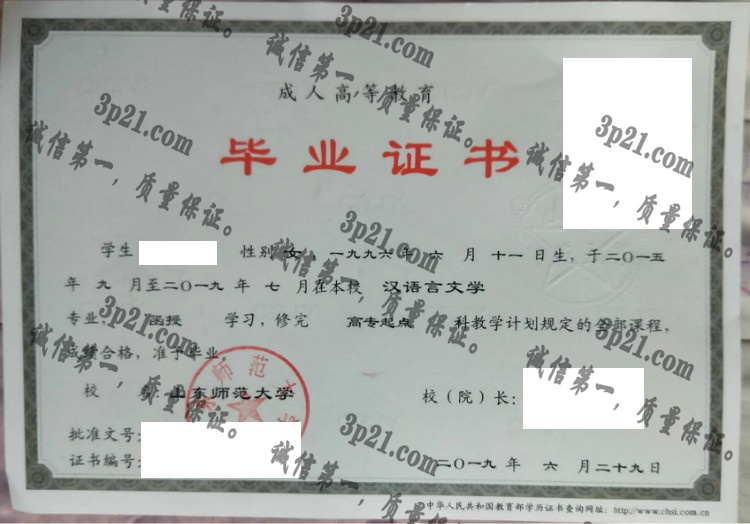 成人高等教育
毕业证书
学生 性别 女、一九九六年 六 月 十一 日生，于二〇一五
年 九 月至二〇一九 年 七 月在本校 汉语言文学
专业， 函授 学习，修完 高专起点 科教学计划规定的全部课程，
成绩合格，准予毕业。
校 名：山东师范大学
校（院）长：
批准文号：
证书编号：
二〇一九 年 六 月二十九日
中华人民共和国教育部学历证书查询网址：http://www.chsi.com.cn
3p21.com
诚信第一，质量保证。
3p21.com
诚信第一，质量保证。
3p21.com
诚信第一，质量保证。
3p21.com
诚信第一，质量保证。
3p21.com
诚信第一，质量保证。
3p21.com
诚信第一，质量保证。
3p21.com
诚信第一，质量保证。